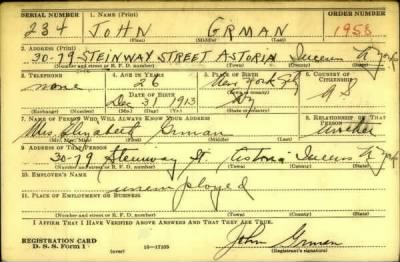 SERIAL NUMBER 1. NAME (Print) ORDER NUMBER
234 JOHN GRMAN 1958
(First) (Middle) (Last)
2. ADDRESS (Print)
30-79 STEINWAY STREET ASTORIA Queens N York
(Number and street or R. F. D. number) (Town) (County) (State)
3. TELEPHONE 4. AGE IN YEARS 5. PLACE OF BIRTH 6. COUNTRY OF CITIZENSHIP
none 26 New York City
DATE OF BIRTH (Town or county)
Dec 31 1913 NY U S
(Exchange) (Number) (Mo.) (Day) (Yr.) (State or country)
7. NAME OF PERSON WHO WILL ALWAYS KNOW YOUR ADDRESS 8. RELATIONSHIP OF THAT PERSON
Mrs. Elizabeth Grman mother
(Mr., Mrs., Miss) (First) (Middle) (Last)
9. ADDRESS OF THAT PERSON
30-79 Steinway St. Astoria Queens N York
(Number and street or R. F. D. number) (Town) (County) (State)
10. EMPLOYER'S NAME
unemployed
11. PLACE OF EMPLOYMENT OR BUSINESS
(Number and street or R. F. D. number) (Town) (County) (State)
I AFFIRM THAT I HAVE VERIFIED ABOVE ANSWERS AND THAT THEY ARE TRUE.
REGISTRATION CARD John Grman
D. S. S. Form 1 (over) 16-17105 (Registrant's signature)